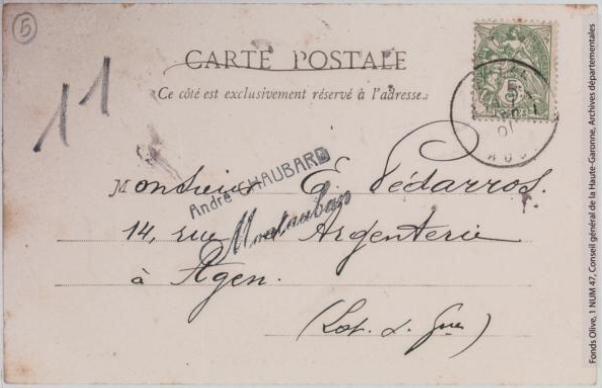 5
CARTE POSTALE
Ce côté est exclusivement réservé à l'adresse.
11
Monsieur E. Pédarros.
André CHAUBARD
Montauban
14, rue Argenterie
à Agen.
(Lot. &. Gne)
Fonds Olive, 1 NUM 47, Conseil général de la Haute-Garonne, Archives départementales